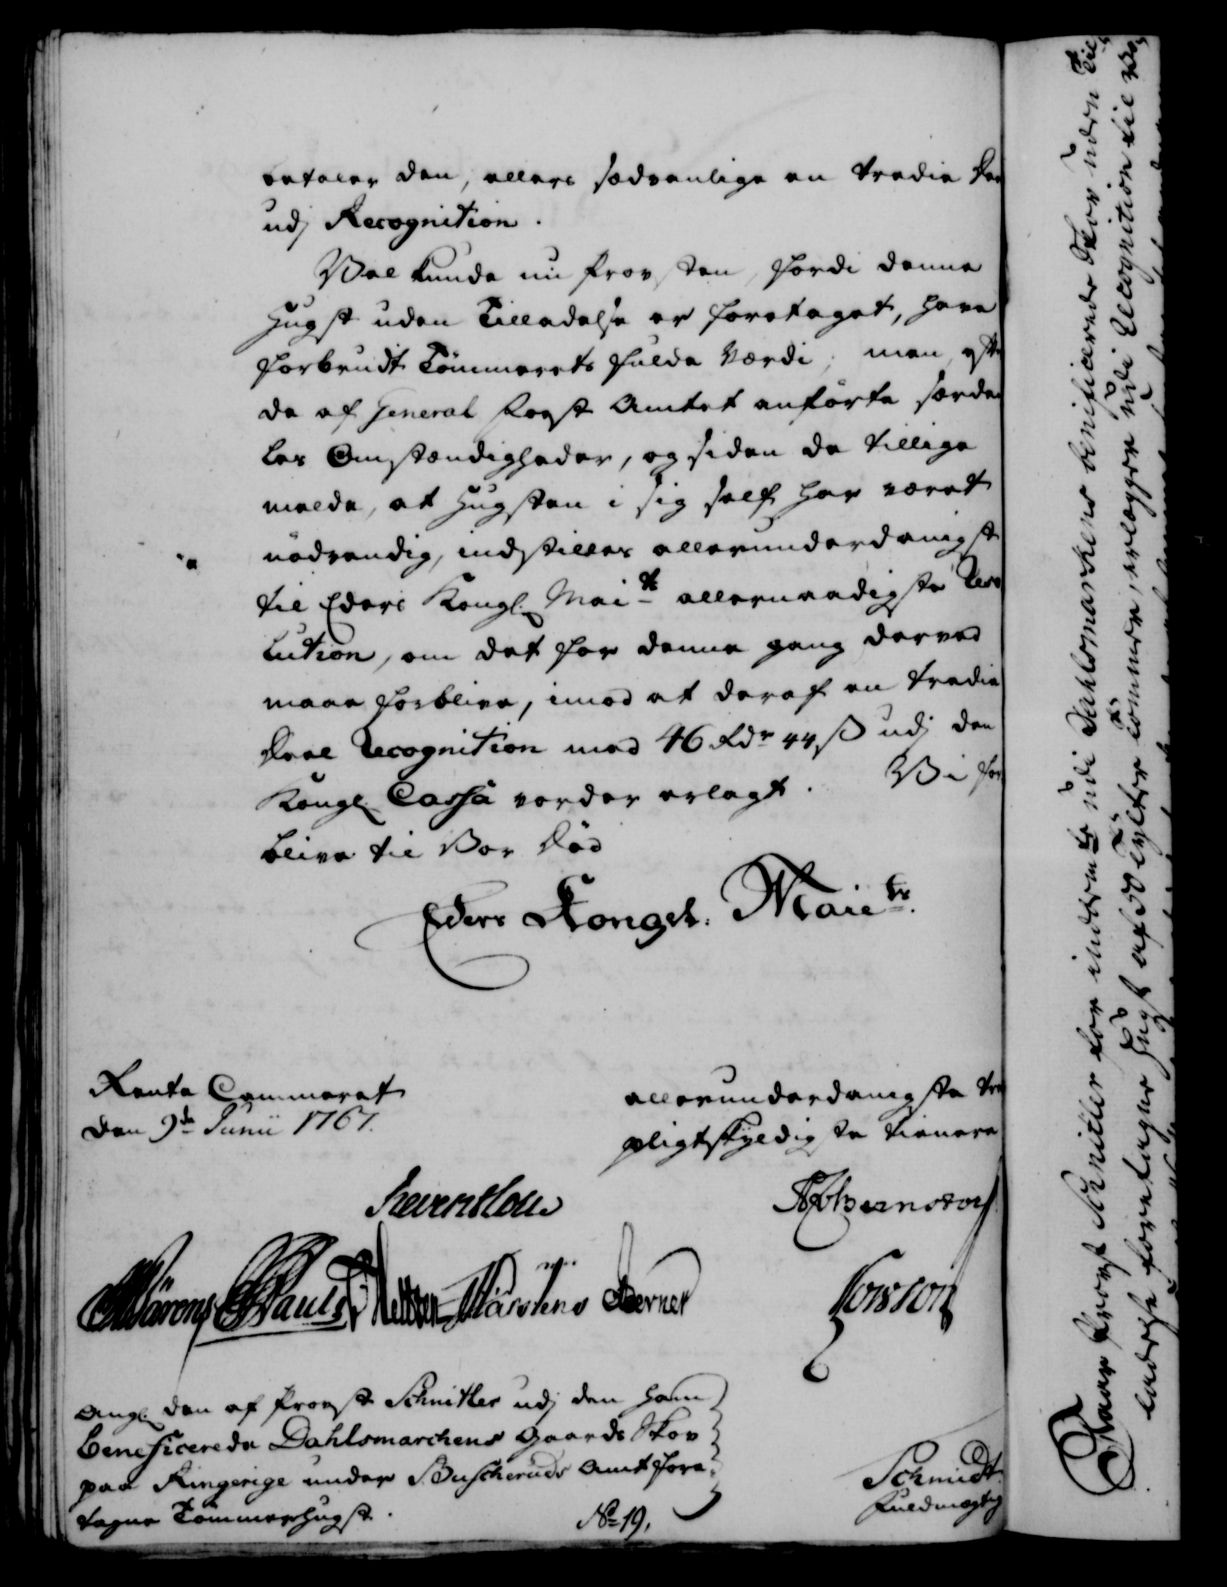 betaler den, ellers sædvanlige en tredie Deel
udj Recognition.
Vel kunde nu Provsten, fordi denne
Hugst uden Tilladelse er foretaget, have
forbrudt Tømmerets fulde Værdi; men, efter
de af General Forst Amtet anførte særde
les Omstændigheder, og siden de tillige
melde, at Hugsten i sig self har været
nødvendig, indstilles allerunderdanigst
til Eders Kongl. Maits allernaadigste Reso
lution, om det for denne gang derved
maae forblive, imod at deraf en tredie
Deel Recognition med 46 Rdr 44 ß udj den
Kongl. Cassa vorder erlagt. Vi for
blive til Vor Død
Eders Kongel. Maits.
Rente Cammeret
den 9de Junii 1767.
allerunderdanigste tro
pligtskyldigste tienere
Reventlow
AP Bernstorf
Pauli
Bernet
Angl. den af Provst Schnitler udj den ham
beneficerede Dahlsmarchens Gaards Skov
paa Ringerige under Buscheruds Amt fore
tagne Tømmerhugst.
No 19.
Schmidt
Fuldmægtig
Naar Provst Schnitler for indbemte udi Dahlsmarkens beneficerede Skov uden Til
ladelse foretagne Hugst af 50 Tylter Tømmer, erlægger udi Recognition til vo